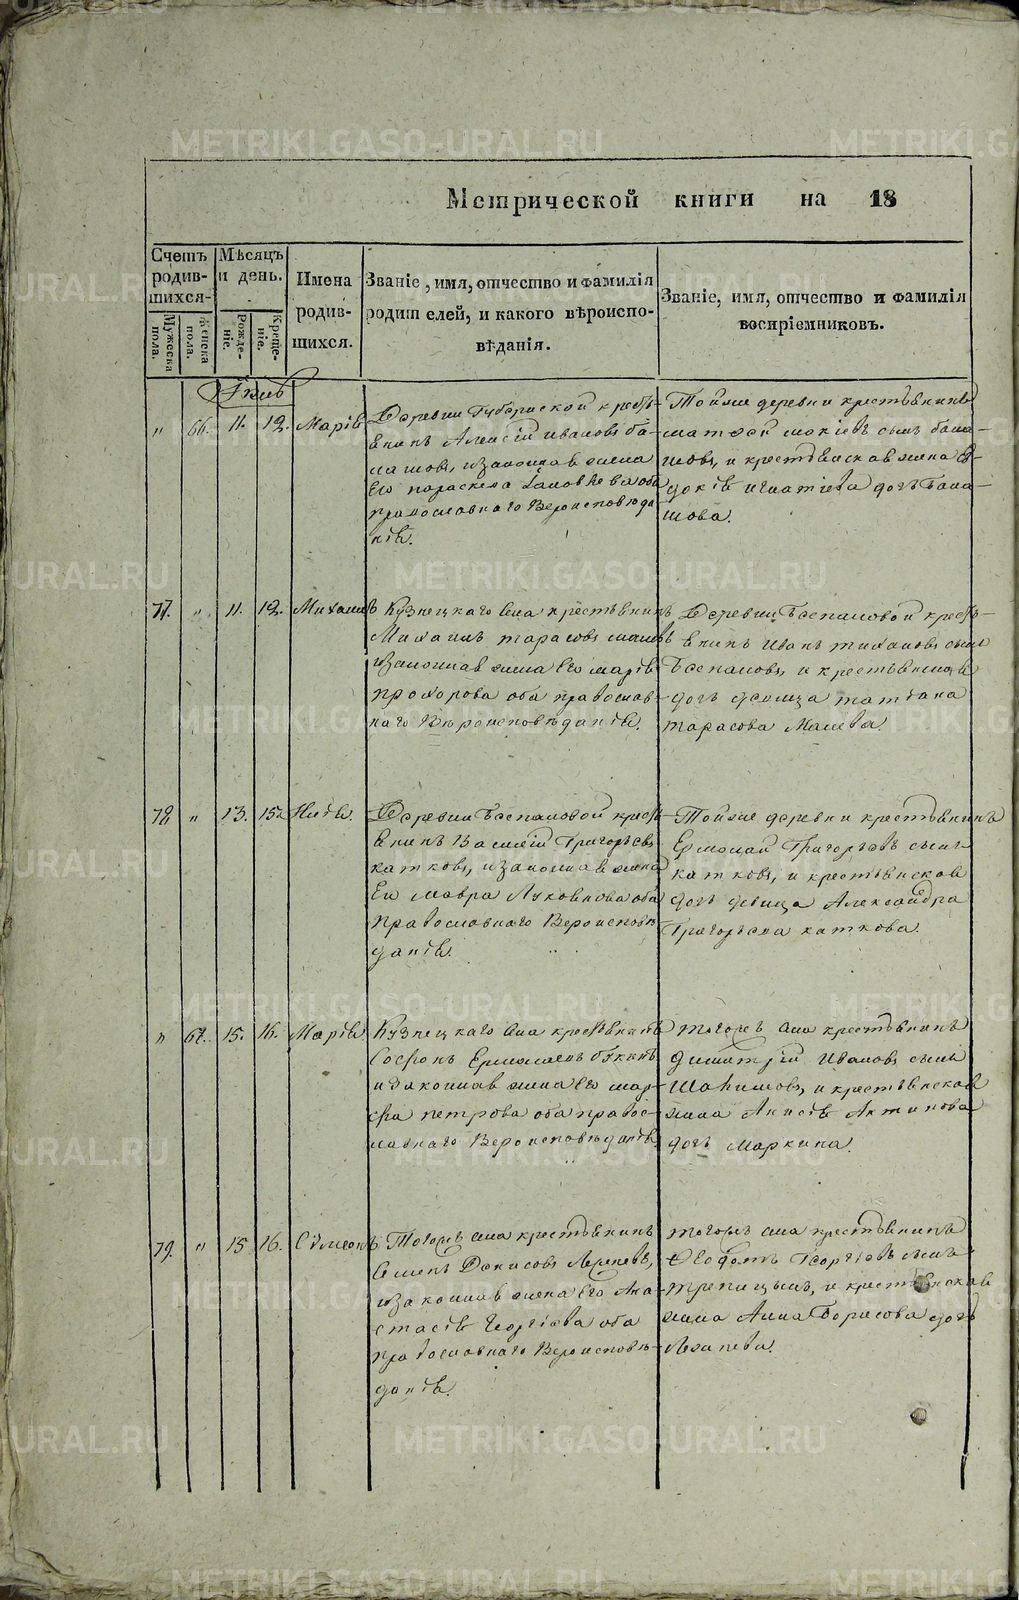 Метрической книги на 18
Счетъ родив-шихся.
Мужеска пола.
Женска пола.
Мѣсяцъ и день.
Рожде-ніе.
Креще-ніе.
Имена родив-шихся.
Званіе, имя, отчество и фамилія
родителей, и какого вѣроиспо-
вѣданія.
Званіе, имя, отчество и фамилія
воспріемниковъ.
" 66. 11. 12. Марія
Деревни Губернской кресть-
янинъ Алексій Ивановъ ба-
лашовъ, изаконная жена
Его параскева оба
православнаго Вероисповѣда
нія.
Тойже деревни крестьянинъ
матвѣй мокіевъ сынъ бала-
шовъ, и крестьянская жена Ев-
докія игнатіева дочь Бала-
шова.
77. " 11. 12. Михаилъ
Кузнецкаго села крестьянинъ
Михаилъ тарасовъ
изаконная жена Его марія
прохорова оба православ-
наго Вѣроисповѣданія.
Деревни кресть-
янинъ Иванъ тихановъ сынъ
и крестьянская
дочь девица татіана
тарасова
78. " 13. 15. 
Деревни кресть-
янинъ Василій Григорьевъ
катковъ, изаконная жена
Его мавра оба
православнаго Вероисповѣ
данія.
Тойже деревни крестьянинъ
Ермолай Григорьевъ сынъ
катковъ, и крестьянская
дочь девица Александра
Григорьева каткова.
" 67. 15. 16. Марія
Кузнецкаго села крестьянинъ
Софронъ
и законная жена Его мар-
фа петрова оба правос-
лавнаго Вероисповѣданія
тогожъ села крестьянинъ
димитрій Ивановъ сынъ
и крестьянская
жена Анисія
дочь маркина.
79. " 15. 16. Сѵмеонъ
Тогожъ села крестьянинъ
Семенъ Денисовъ
изаконная жена Его Ана-
стасія Георгіева оба
православнаго Вероисповѣ-
данія.
тогожъ села крестьянинъ
Ѳеодотъ Георгіевъ сынъ
и крестьянская
жена Анна Борисова дочь